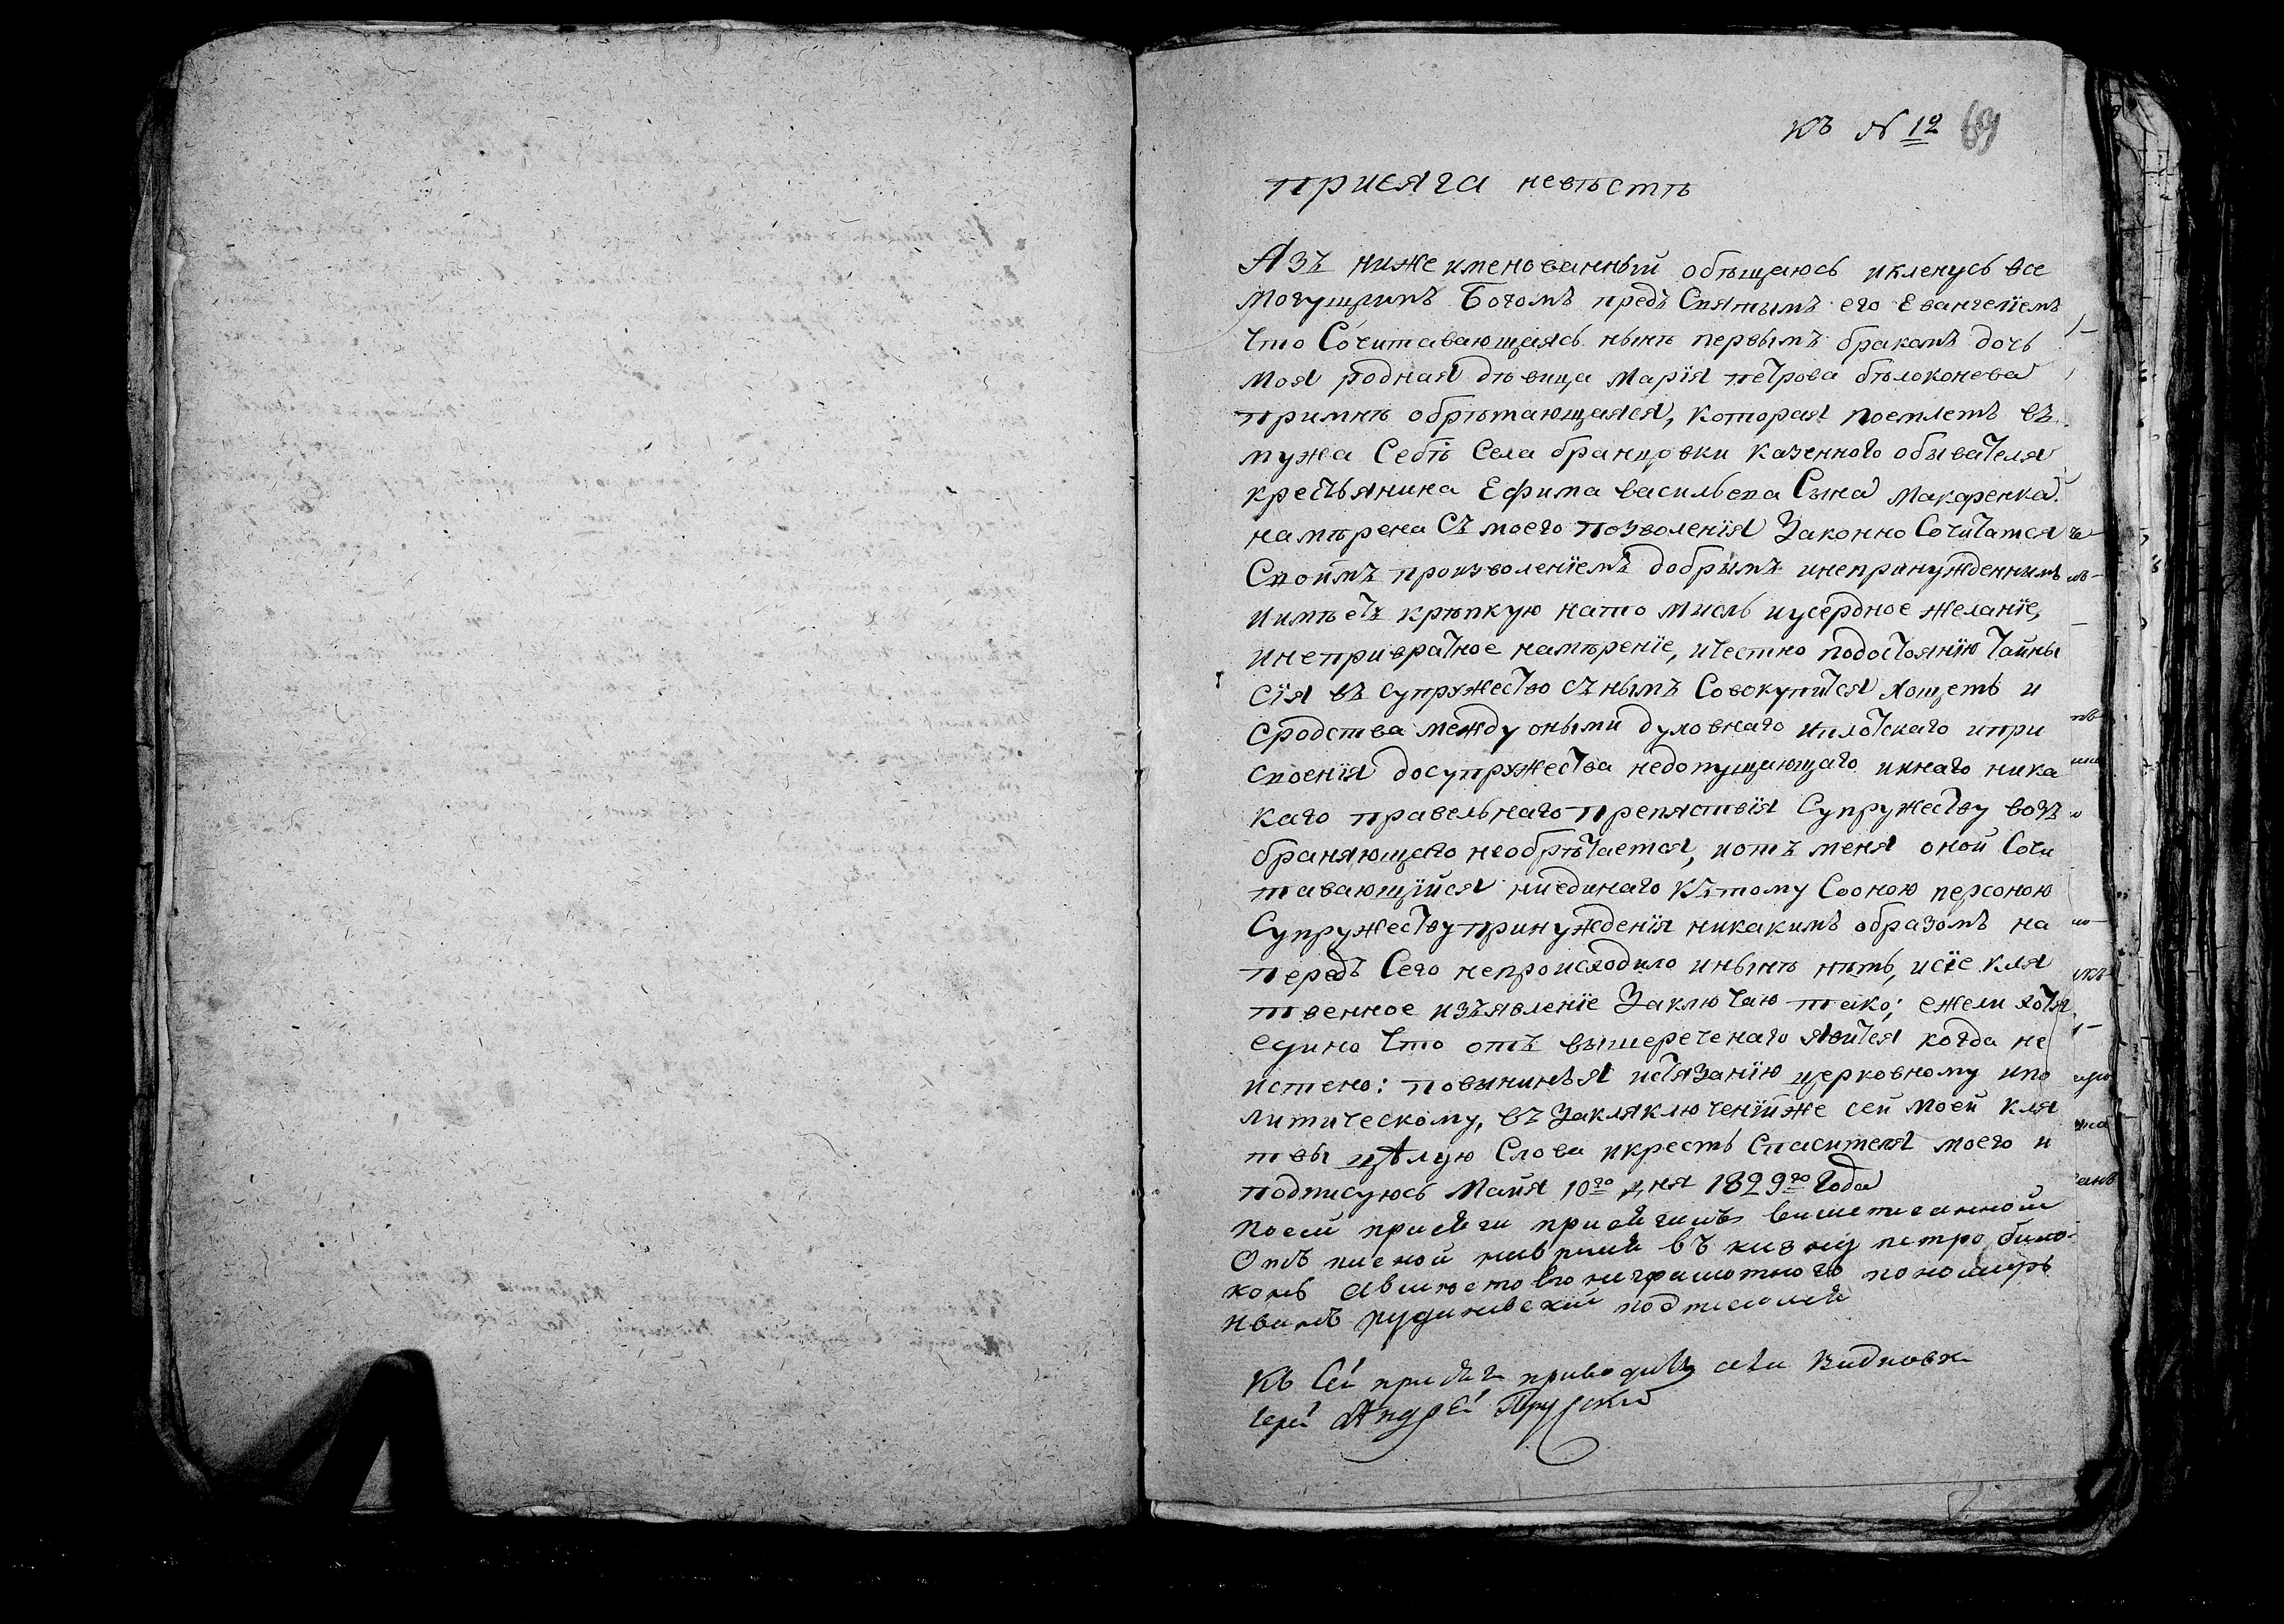 къ N 12 69
присяга невѣстѣ
Азъ нижеименованный обѣщаюсь икленусь все
могущимъ Богомъ предъ Святымъ его Евангелїемъ
что Сочитавающаясь нынѣ первымъ бракомъ дочь
моя родная дѣвица Марїя петрова бѣлоконева
примнѣ обрѣтающаяся, которая поемлетъ въ
мужа Себѣ Села бранцовки казенного обывателя
крестьянина Ефима васильева Сына Макаренка
намѣрена Съ моего позволенїя Законно Сочитатся
Своимъ произволенїемъ добрымъ инепринужденнымъ
иимѣетъ крѣпкую нато мисль иусердное желанїе,
инепривратное намѣренїе, ичестно подостоянїю тайны
сїя въ супружество съ нымъ Совокупитса хощетъ и
сродства между оными духовнаго иплотскаго ипри
своенїя досупружества недопущающаго иннаго ника
каго правельнаго препятствїя Супружеству возъ
браняющаго необрѣтается, иотъ меня оной Сочи
тавающїйся ниединаго къ тому Соною персоною
Супружеству принужденїя никакимъ образомъ на
передъ Сего непроисходило инынѣ нѣтъ, исїе кля
твенное изъявленїе Заключаю тако; ежели хотя
едино что отъ вышереченаго явится когда не
истено: повыниненъ я истязанїю церковному ипо
литическому, въ Закляключенїи же сей моей кля
твы цѣлую Слова икрестъ Спасителя моего и
подписуюсь Майя 10го дня 1829го года
посей присяги присягилъ вишеписанной
Отъ
въ петро било
конь авместо его неграмотного пономарь
иванъ рудиневский подписался
Къ Сей присяге приводилъ
Іерей Андрей Прусский